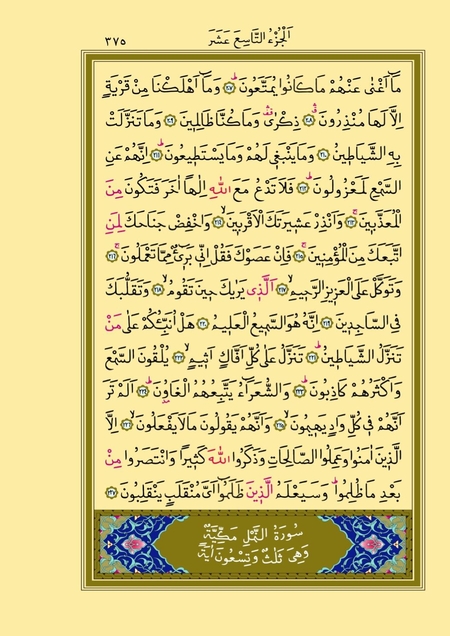 اَلْجُزْءُ التَّاسِعَ عَشَرَ ٣٧٥
مَٓا اَغْنٰى عَنْهُمْ مَا كَانُوا يُمَتَّعُونَۜ ﴿٢٠٧﴾ وَمَٓا اَهْلَكْنَا مِنْ قَرْيَةٍ
اِلَّا لَهَا مُنْذِرُونَۗ ﴿٢٠٨﴾ ذِكْرٰىۛ وَمَا كُنَّا ظَالِمٖينَ ﴿٢٠٩﴾ وَمَا تَنَزَّلَتْ
بِهِ الشَّيَاطٖينُ ﴿٢١٠﴾ وَمَا يَنْبَغٖي لَهُمْ وَمَا يَسْتَطٖيعُونَۜ ﴿٢١١﴾ اِنَّهُمْ عَنِ
السَّمْعِ لَمَعْزُولُونَۜ ﴿٢١٢﴾ فَلَا تَدْعُ مَعَ اللّٰهِ اِلٰهًا اٰخَرَ فَتَكُونَ مِنَ
الْمُعَذَّبٖينَۚ ﴿٢١٣﴾ وَاَنْذِرْ عَشٖيرَتَكَ الْاَقْرَبٖينَۙ ﴿٢١٤﴾ وَاخْفِضْ جَنَاحَكَ لِمَنِ
اتَّبَعَكَ مِنَ الْمُؤْمِنٖينَۚ ﴿٢١٥﴾ فَاِنْ عَصَوْكَ فَقُلْ اِنّٖي بَرٖٓيءٌ مِمَّا تَعْمَلُونَۚ ﴿٢١٦﴾
وَتَوَكَّلْ عَلَى الْعَزٖيزِ الرَّحٖيمِۙ ﴿٢١٧﴾ اَلَّذٖي يَرٰيكَ حٖينَ تَقُومُۙ ﴿٢١٨﴾ وَتَقَلُّبَكَ
فِي السَّاجِدٖينَ ﴿٢١٩﴾ اِنَّهُ هُوَ السَّمٖيعُ الْعَلٖيمُ ﴿٢٢٠﴾ هَلْ اُنَبِّئُكُمْ عَلٰى مَنْ
تَنَزَّلُ الشَّيَاطٖينُۜ ﴿٢٢١﴾ تَنَزَّلُ عَلٰى كُلِّ اَفَّاكٍ اَثٖيمٍۙ ﴿٢٢٢﴾ يُلْقُونَ السَّمْعَ
وَاَكْثَرُهُمْ كَاذِبُونَۜ ﴿٢٢٣﴾ وَالشُّعَرَٓاءُ يَتَّبِعُهُمُ الْغَاوُ۫نَۜ ﴿٢٢٤﴾ اَلَمْ تَرَ
اَنَّهُمْ فٖي كُلِّ وَادٍ يَهٖيمُونَۙ ﴿٢٢٥﴾ وَاَنَّهُمْ يَقُولُونَ مَا لَا يَفْعَلُونَۙ ﴿٢٢٦﴾ اِلَّا
الَّذٖينَ اٰمَنُوا وَعَمِلُوا الصَّالِحَاتِ وَذَكَرُوا اللّٰهَ كَثٖيرًا وَانْتَصَرُوا مِنْ
بَعْدِ مَا ظُلِمُواۜ وَسَيَعْلَمُ الَّذٖينَ ظَلَمُٓوا اَيَّ مُنْقَلَبٍ يَنْقَلِبُونَ ﴿٢٢٧﴾
سُورَةُ النَّمْلِ مَكِّيَّةٌ
وَهِيَ ثَلٰثٌ وَتِسْعُونَ اٰيَةً